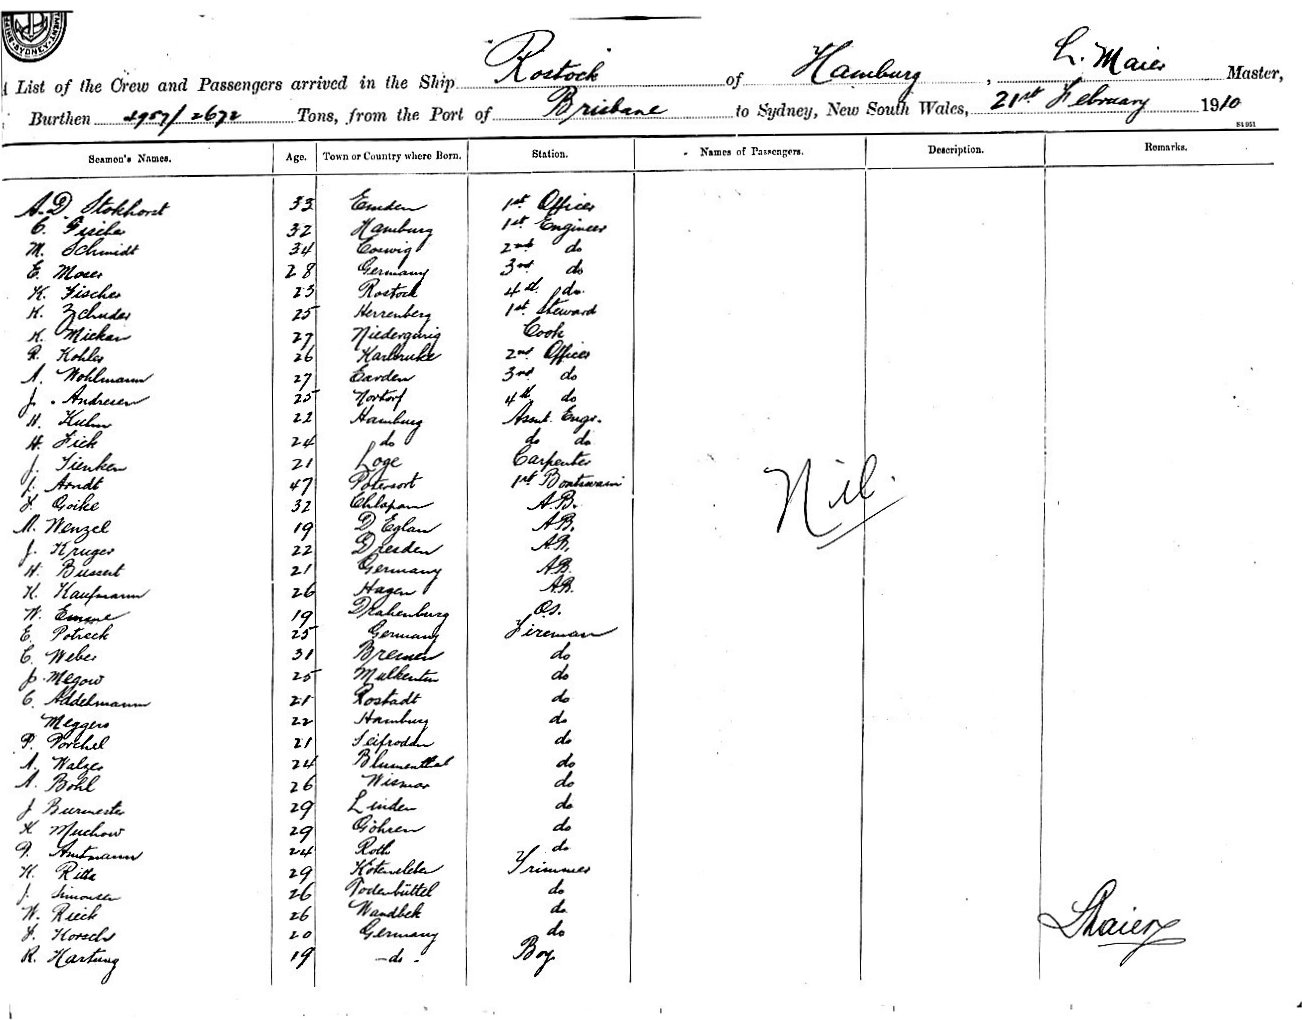 SYDNEY
List of the Crew and Passengers arrived in the Ship Rostock of Hamburg, L. Maier Master,
Burthen 2957/2672 Tons, from the Port of Brisbane to Sydney, New South Wales, 21st February 1910
Seamen's Names. Age. Town or Country where Born. Station. Names of Passengers. Description. Remarks.
A. D. Stokhorst 33 Emden 1st Officer
C. 32 Hamburg 1st Engineer
M. Schmidt 34 Coswig 2nd do
E. Moser 28 Germany 3rd do
K. Fischer 23 Rostock 4th do.
K. Zehnder 25 Herrenberg 1st Steward
K. Mickan 27 Niedergurig Cook
R. Kohler 26 Karlsruhe 2nd Officer
A. Wohlmann 27 3rd do
J. Andresen 25 Nortorf 4th do
H. Kuhn 22 Hamburg Asst. Engr.
H. Fick 24 do do do
J. Tienken 21 Loge Carpenter
J. Arndt 47 1st Boatswain
F. Goike 32 Chlapau A.B.
M. Wenzel 19 D. Eglau A.B.
J. Kruger 22 Dresden A.B.
H. Bussert 21 Germany A.B.
K. Kaufmann 26 Hagen A.B.
W. Emme 19 Drahenburg O.S.
E. Potreck 25 Germany Fireman
C. Weber 31 Bremen do
J. Megow 25 Mulkentin do
C. Addelmann 21 Rostadt do
Meggers 22 Hamburg do
P. Porchel 21 do
A. Walzer 24 Blumenthal do
A. Bohl 26 Wismar do
J. Burmester 29 Linden do
K. Muchow 29 Göhren do
P. Amtmann 24 Roth do
K. Ritte 29 Trimmer
J. Simonsen 26 Todenbüttel do
W. Rieck 26 Wandbek do
F. Korsch 20 Germany do
R. Hartung 19 - do - Boy
Nil.
L Maier